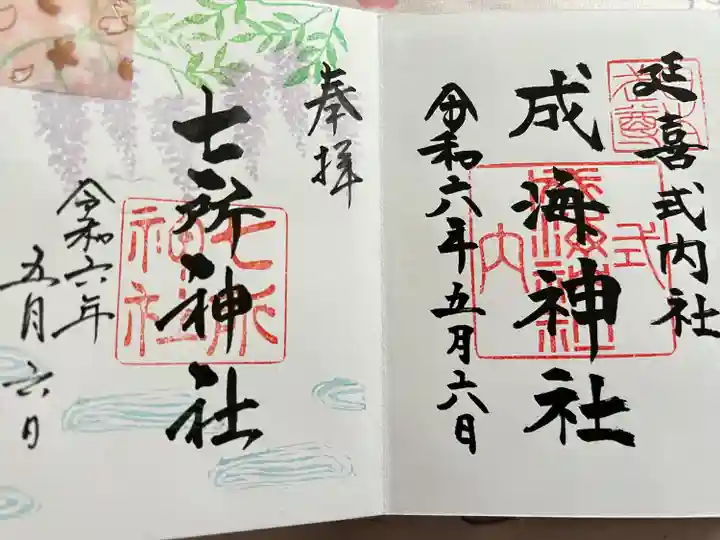 延喜式内社
成海神社
令和六年五月六日
奉拝
七所神社
令和六年
五月六日
七所
神社
式
内